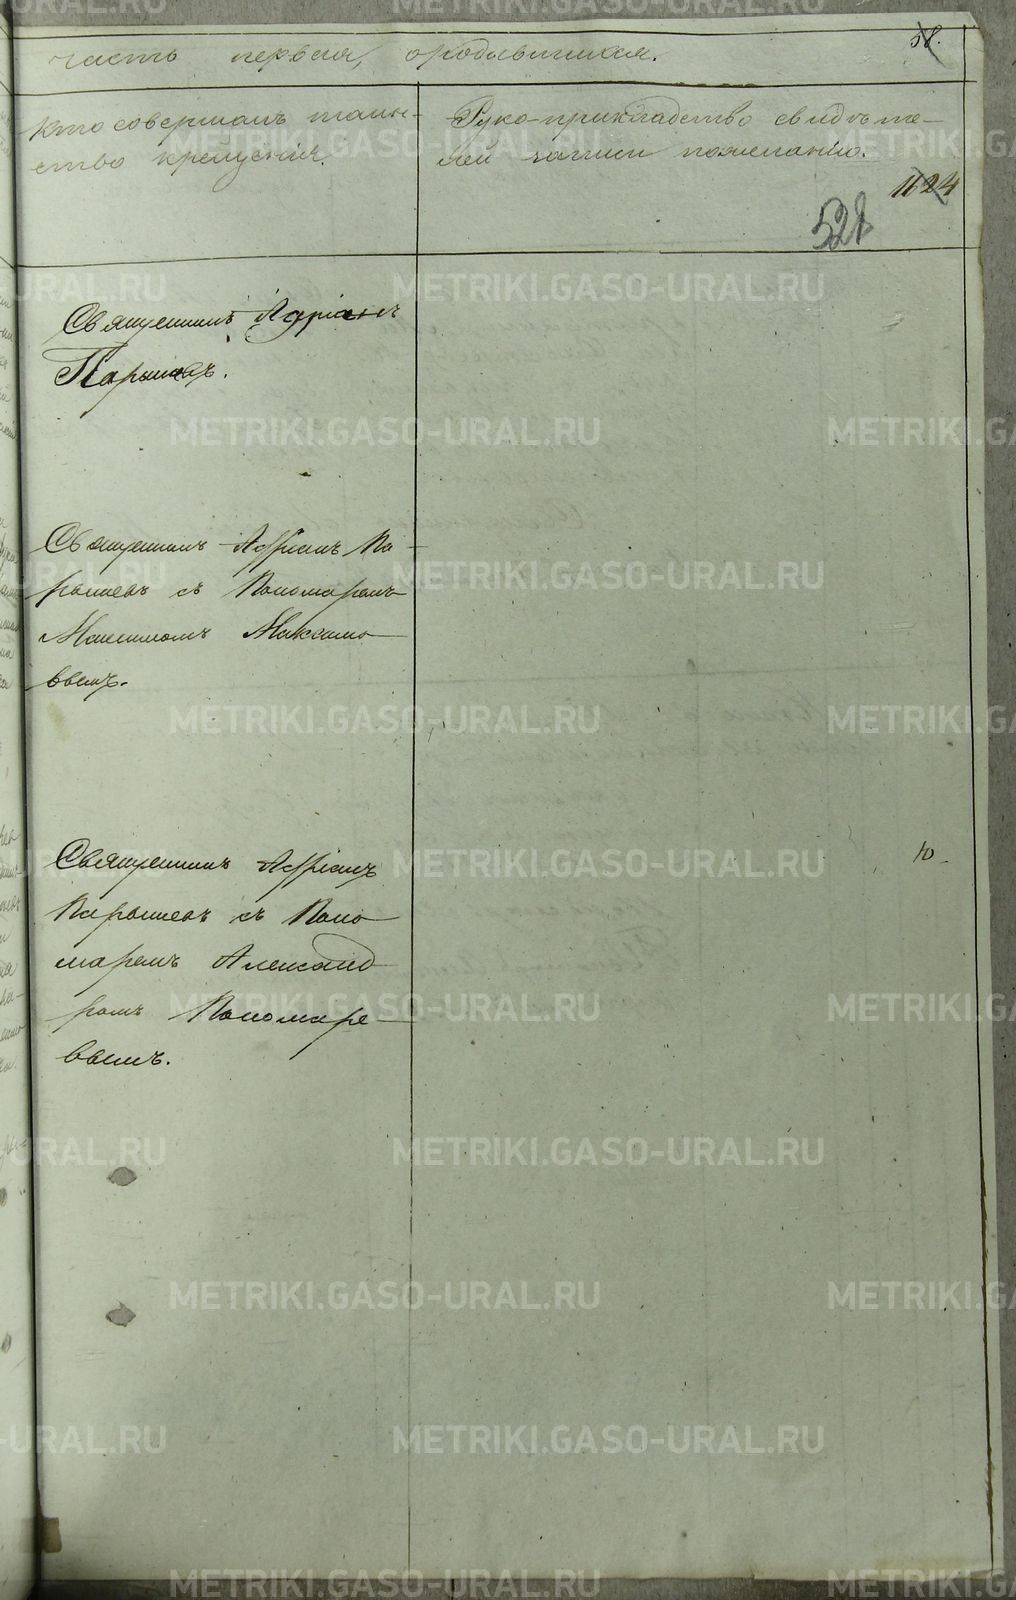 58.
часть первая, ородывшихся.
Кто совершалъ таин-
ство крещенія.
Руко-прикладство свидѣте-
лей записи пожеланію.
1124
521
Священникъ Адріанъ
Парышевъ.
Священникъ Адріанъ Па-
рышевъ съ Пономаремъ
Максимомъ Максимо
вымъ.
Священникъ Адріанъ
Парышевъ съ Поно
маремъ Александ
ромъ Пономаре-
вымъ.
Ю
METRIKI.GASO-URAL.RU